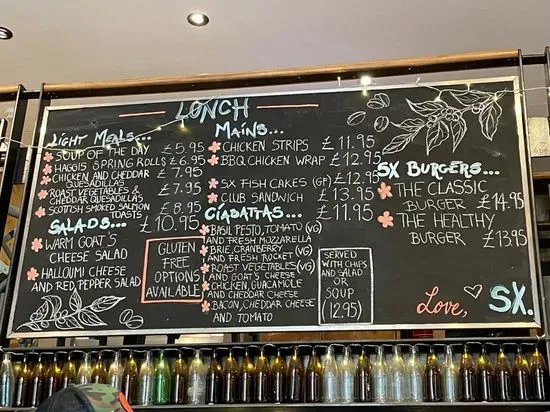 LUNCH
LIGHT MEALS...
SOUP OF THE DAY £5.95
HAGGIS SPRING ROLLS £6.95
CHICKEN AND CHEDDAR
QUESADILLAS £7.95
ROAST VEGETABLES &
CHEDDAR QUESADILLAS £7.95
SCOTTISH SMOKED SALMON
TOASTS £8.95
SALADS... £10.95
WARM GOAT'S
CHEESE SALAD
HALLOUMI CHEESE
AND RED PEPPER SALAD
GLUTEN
FREE
OPTIONS
AVAILABLE
MAINS...
CHICKEN STRIPS £11.95
BBQ CHICKEN WRAP £12.95
SX FISH CAKES (GF) £12.95
CLUB SANDWICH £13.95
CIABATTAS... £11.95
BASIL PESTO, TOMATO (VG)
AND FRESH MOZZARELLA
BRIE, CRANBERRY (VG)
AND FRESH ROCKET
ROAST VEGETABLES (VG)
AND GOAT'S CHEESE
CHICKEN, GUACAMOLE
AND CHEDDAR CHEESE
BACON, CHEDDAR CHEESE
AND TOMATO
SERVED
WITH CHIPS
AND SALAD
OR
SOUP
(12.95)
SX BURGERS...
THE CLASSIC
BURGER £14.95
THE HEALTHY
BURGER £13.95
Love, SX.